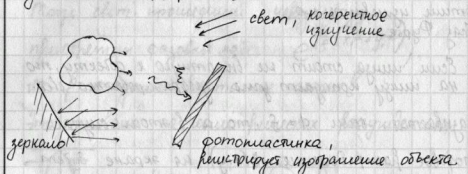 свет, когерентное
излучение
зеркало
фотопластинка,
регистрирует изображение объекта